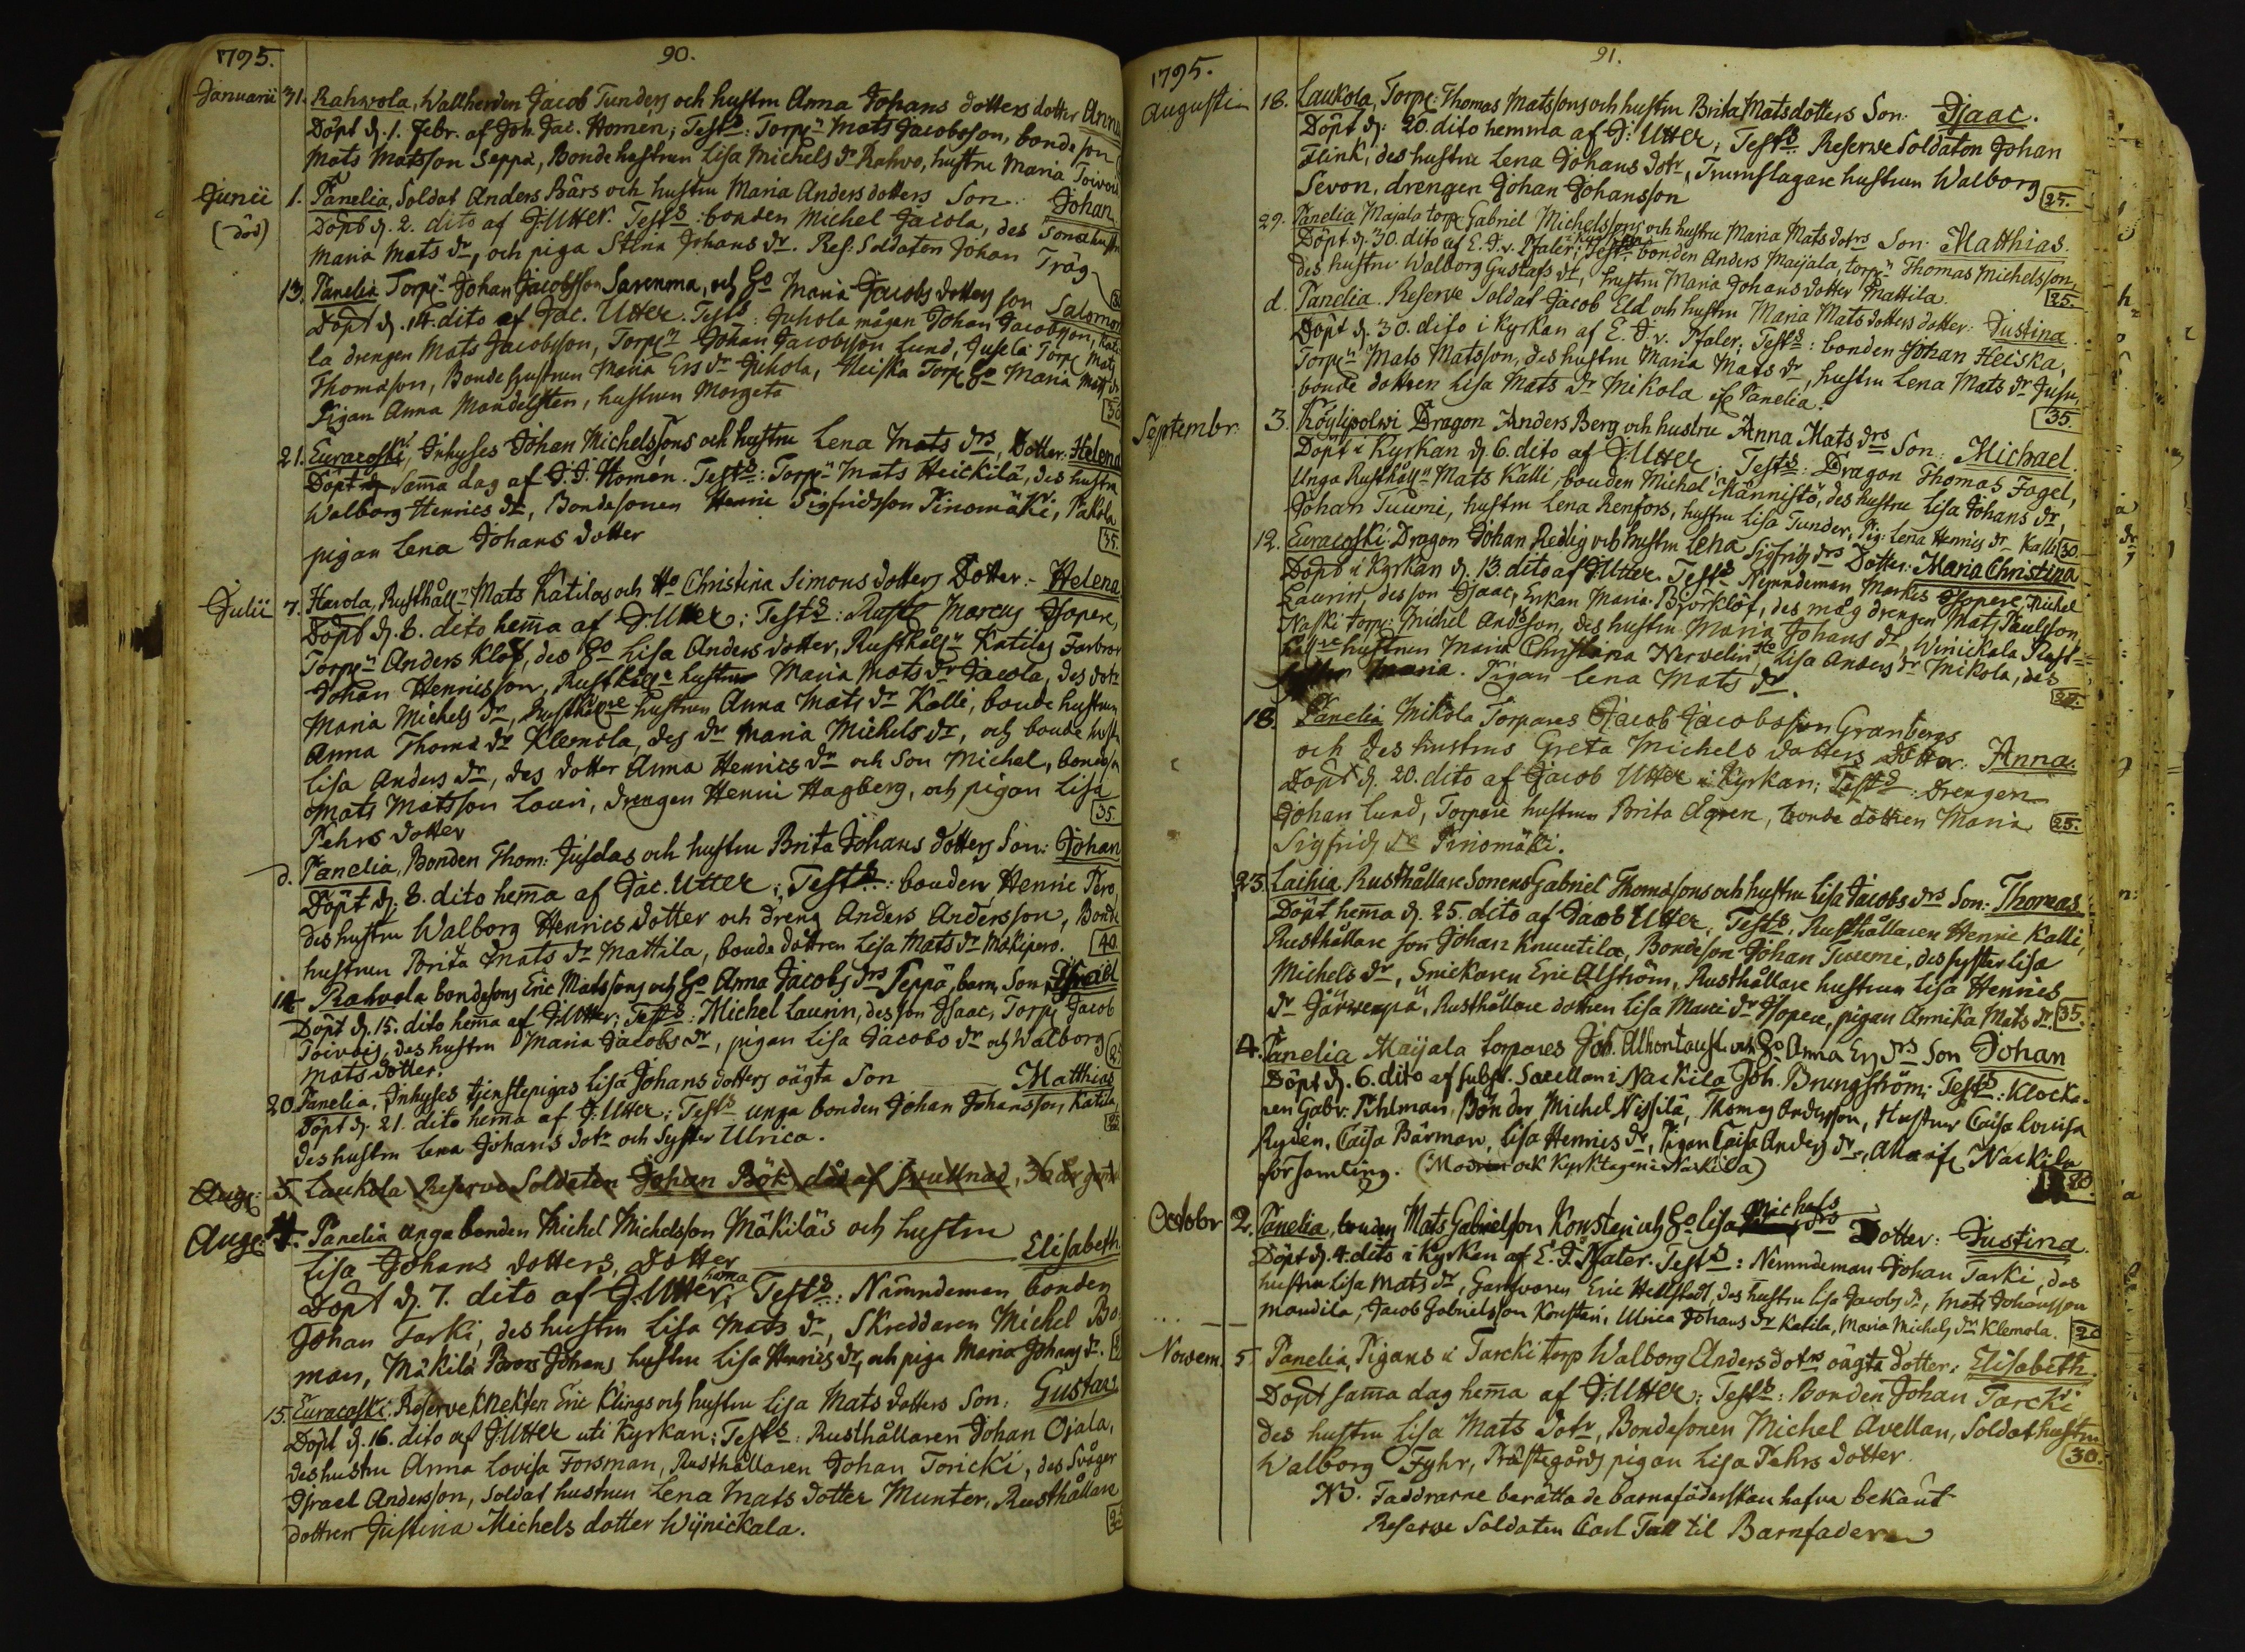 1795.
90.
Januarii 31. Rahvola, Wallherden Jacob Tunders och hustru Anna Johans dotters dotter Anna
Döpt d. 1. Febr. af Joh. Jac. Homén; Test: Torp: Mats Jacobsson, bonde son
Mats Matsson Seppä, Bonde hustrun Lisa Michels dr Rahvo, hustru Maria Toivois
Junii 1. Panelia, Soldat Anders Bärs och hustru Maria Anders dotters Son: Johan
(död) Döpt d. 2. dito af J: Utter. Test: bonden Michel Jacola, des Sona hustru
Maria Mats dr, och piga Stina Johans dr. Res: Soldaten Johan Träg
13. Panelia Torp: Johan Jacobsson Savenma, och Ho Maria Jacobs dotters son Salomon
Döpt d. 14. dito af Jac. Utter. Test: Juhola mågen Johan Jacobsson, Kati
la drengen Mats Jacobsson, Torp: Johan Jacobsson Lund, Jusela Torp: Mats
Thomasson, Bonde hustrun Maria Ers dr Juhola, Heiska Torp: Ho Maria Mats dr
Pigan Anna Mandelsten, hustrun Margeta
21. Euracoski, Inhyses Johan Michelssons och hustru Lena Mats drs, Dotter: Helena
Döpt samma dag af J. J. Homén. Test: Torp: Mats Heickilä, des hustru
Walborg Henrics dr, Bondesonen Henric Sigfridsson Pinomäki, Pakola
pigan Lena Johans dotter 35.
Julii 7. Havola, Rusthåll: Mats Katilas och Ho Christina Simons dotters Dotter: Helena
Döpt d. 8. dito hemma af J: Utter; Test: Rusth Marcus Isopere,
Torp: Anders Klöf, des Ho Lisa Anders dotter, Rusthåll: Katilas Farbror
Johan Henricsson, Rusthåll: hustrun Maria Mats dr Jacola, des dotr
Maria Michels dr, Rusthåll: hustrun Anna Mats dr Kalli, bonde hustrun
Anna Thoms dr Klemola, des dr Maria Michels dr, och bonde hustr
Lisa Anders dr, des dotter Anna Henrics dr och Son Michel, bondeson
Mats Matsson Lauri, drengen Henric Hagberg, och pigan Lisa
Pehrs dotter 35.
d. Panelia, Bonden Thom: Juselas och hustru Brita Johans dotters Son: Johan
Döpt d. 8. dito hemma af Jac. Utter; Test: bonden Henric Pero,
des hustru Walborg Henrics dotter och dreng Anders Andersson, Bonde
hustrun Brita Mats dr Mattila, bonde dottren Lisa Mats dr Mäkipero. 40.
14. Rahvola bondesons Eric Matssons och Ho Anna Jacobs drs Seppä, barn, Son Israël
Döpt d. 15. dito hemma af J: Utter; Test: Michel Laurin, des son Isaac, Torp: Jacob
Toivois, des hustru Maria Jacobs dr, pigan Lisa Jacobs dr och Walborg
Mats dotter.
20. Panelia. Inhyses tjenstepigas Lisa Johans dotters oägta Son Matthias
Döpt d. 21. dito hemma af J: Utter; Test: unga bonden Johan Johansson Katila,
des hustru Lena Johans dotr och Syster Ulrica.
Aug: 5. Laukola Reserve Soldaten Johan Bök död af Swullnad, 36 år gml
Aug: 4. Panelia unga bonden Michel Michelsson Mäkiläs och hustru
Lisa Johans dotters, dotter Elisabeth.
Döpt d. 7. dito af J: Utter hemma; Test: Nämndeman bonden
Johan Tarki, des hustru Lisa Mats dr, Skreddaren Michel Bo
man, Mäkilä Johans hustru Lisa Henrics dr, och piga Maria Johans dr.
15. Euracoski. Reserve Knekten Eric Klings och hustru Lisa Mats dotters Son: Gustav
Döpt d. 16. dito af J: Utter uti Kyrkan; Test: Rusthållaren Johan Ojala,
des hustru Anna Lovisa Forsman, Rusthållaren Johan Toricki, des Svåger
Israel Andersson, Soldat hustrun Lena Mats dotter Munter, Rusthållare
dottren Justina Michels dotter Wijnickala.
1795.
91.
Augusti 18. Laukola, Torp: Thomas Matssons och hustru Brita Matsdotters Son: Isaac.
Döpt d. 20. dito hemma af J: Utter; Test: Reserve Soldaten Johan
Flink, des hustru Lena Johans dotr, Trumslagare hustrun Walborg
Sevon, drengen Johan Johansson 25.
29. Panelia Majala torp: Gabriel Michelssons och hustru Maria Mats dotrs Son: Matthias.
Döpt d. 30. dito af E. J. v. Pfaler; Test: bonden Anders Maijala, torp: Thomas Michelsson,
des hustru Walborg Gustafs dr, hustru Maria Johans dotter Mattila. 25.
d. Panelia. Reserve Soldat Jacob Eld och hustru Maria Mats dotters dotter: Justina.
Döpt d. 30. dito i Kyrkan af E. J. v. Pfaler; Test: bonden Johan Heiska,
Torp: Mats Matsson, des hustru Maria Mats dr, hustru Lena Mats dr Jusu,
bonde dottren Lisa Mats dr Mikola if: Panelia. 35.
Septembr: 3. Köylipolvi Dragon Anders Berg och hustru Anna Mats drs Son: Michael
Döpt i Kyrkan d. 6. dito af J: Utter; Test: Dragon Thomas Fagel,
Unga Rusthåll: Mats Kalli, bonden Michel Männistö, des hustru Lisa Johans dr,
Johan Tuumi, hustru Lena Renfors, hustru Lisa Tunder, Pig: Lena Henrics dr Kalli 30.
12. Euracoski: Dragon Johan Redlig och hustru Lena Sigfrids drs Dotter: Maria Christina
Döpt i Kyrkan d. 13. dito af J: Utter. Test Nemndeman Markis Isopere, Michel
Laurin des son Isaac, Enkan Maria Björklöf, des måg drengen Mats Paulsson,
Naski torp: Michel Andsson, des hustru Maria Johans dr, Winickala Rust=
hållre hustrun Maria Christina Nervelin, Ho Lisa Anders dr Mikola, des
Syster Maria. Pigan Lena Mats dr.
18. Panelia Mikola Torpares Jacob Jacobsson Granbergs
och des hustrus Greta Michels dotters dotter: Anna.
Döpt d. 20. dito af Jacob Utter i Kyrkan; Test: Drengen
Johan Lund, Torpare hustrun Brita Agren, bonde dottren Maria 25.
Sigfrids dr Pinomäki.
23. Laihia Rusthållare Sonens Gabriel Thomassons och hustru Lisa Jacobs drs Son: Thomas.
Döpt hemma d. 25. dito af Jacob Utter; Test: Rusthållaren Henric Kalli,
Rusthållare son Johan Knuutila, Bondeson Johan Tuumi, des syster Lisa
Michels dr, Snickaren Eric Alström, Rusthållare hustrun Lisa Henrics
dr Järvenpä, Rusthållare dottren Lisa Marci dr Isopere, pigan Annika Mats dr. 35.
4. Panelia Maijala torpares Joh. och Ho Anna Ers drs Son Johan
Döpt d. 6. dito af subst. Sacellan i Nackila Joh. Brungström; Test: Klocka-
ren Gabr: Pihlman, Bönder Michel Nissilä, Thomas Andersson, Hustrur Caisa Lovisa
Rydén, Caisa Bärman, Lisa Henrics dr, Pigan Caisa Anders dr, Alla if: Nackila
församling. (Modren ock Kyrktagen i Nackila) 20.
Octobr 2. Panelia, bonden Mats Gabrielsson Konsteri och Ho Lisa Michels drs Dotter: Justina.
Döpt d. 4. dito i Kyrkan af E. J. Pfaler. Test: Nemndeman Johan Tarki, des
hustru Lisa Mats dr, Garfvaren Eric Hellstedt, des hustru Lisa Jacobs dr, Mats Johansson
Mandila, Jacob Gabrielsson Konsteri, Ulrica Johans dr Katila, Maria Michels dr Klemola.
Novem. 5. Panelia, Pigans i Tarcki torp Walborg Anders dotrs oägta dotter: Elisabeth.
Döpt samma dag hemma af J: Utter; Test: Bonden Johan Tarcki
des hustru Lisa Mats dotr, Bondesonen Michel Avellan, Soldat hustru
Walborg Fyhr, Prästegårds pigan Lisa Pehrs dotter. 30.
NB. Faddrarne berättade barnaföderskan hafva bekänt
Reserve Soldaten Carl Tall til Barnfadern